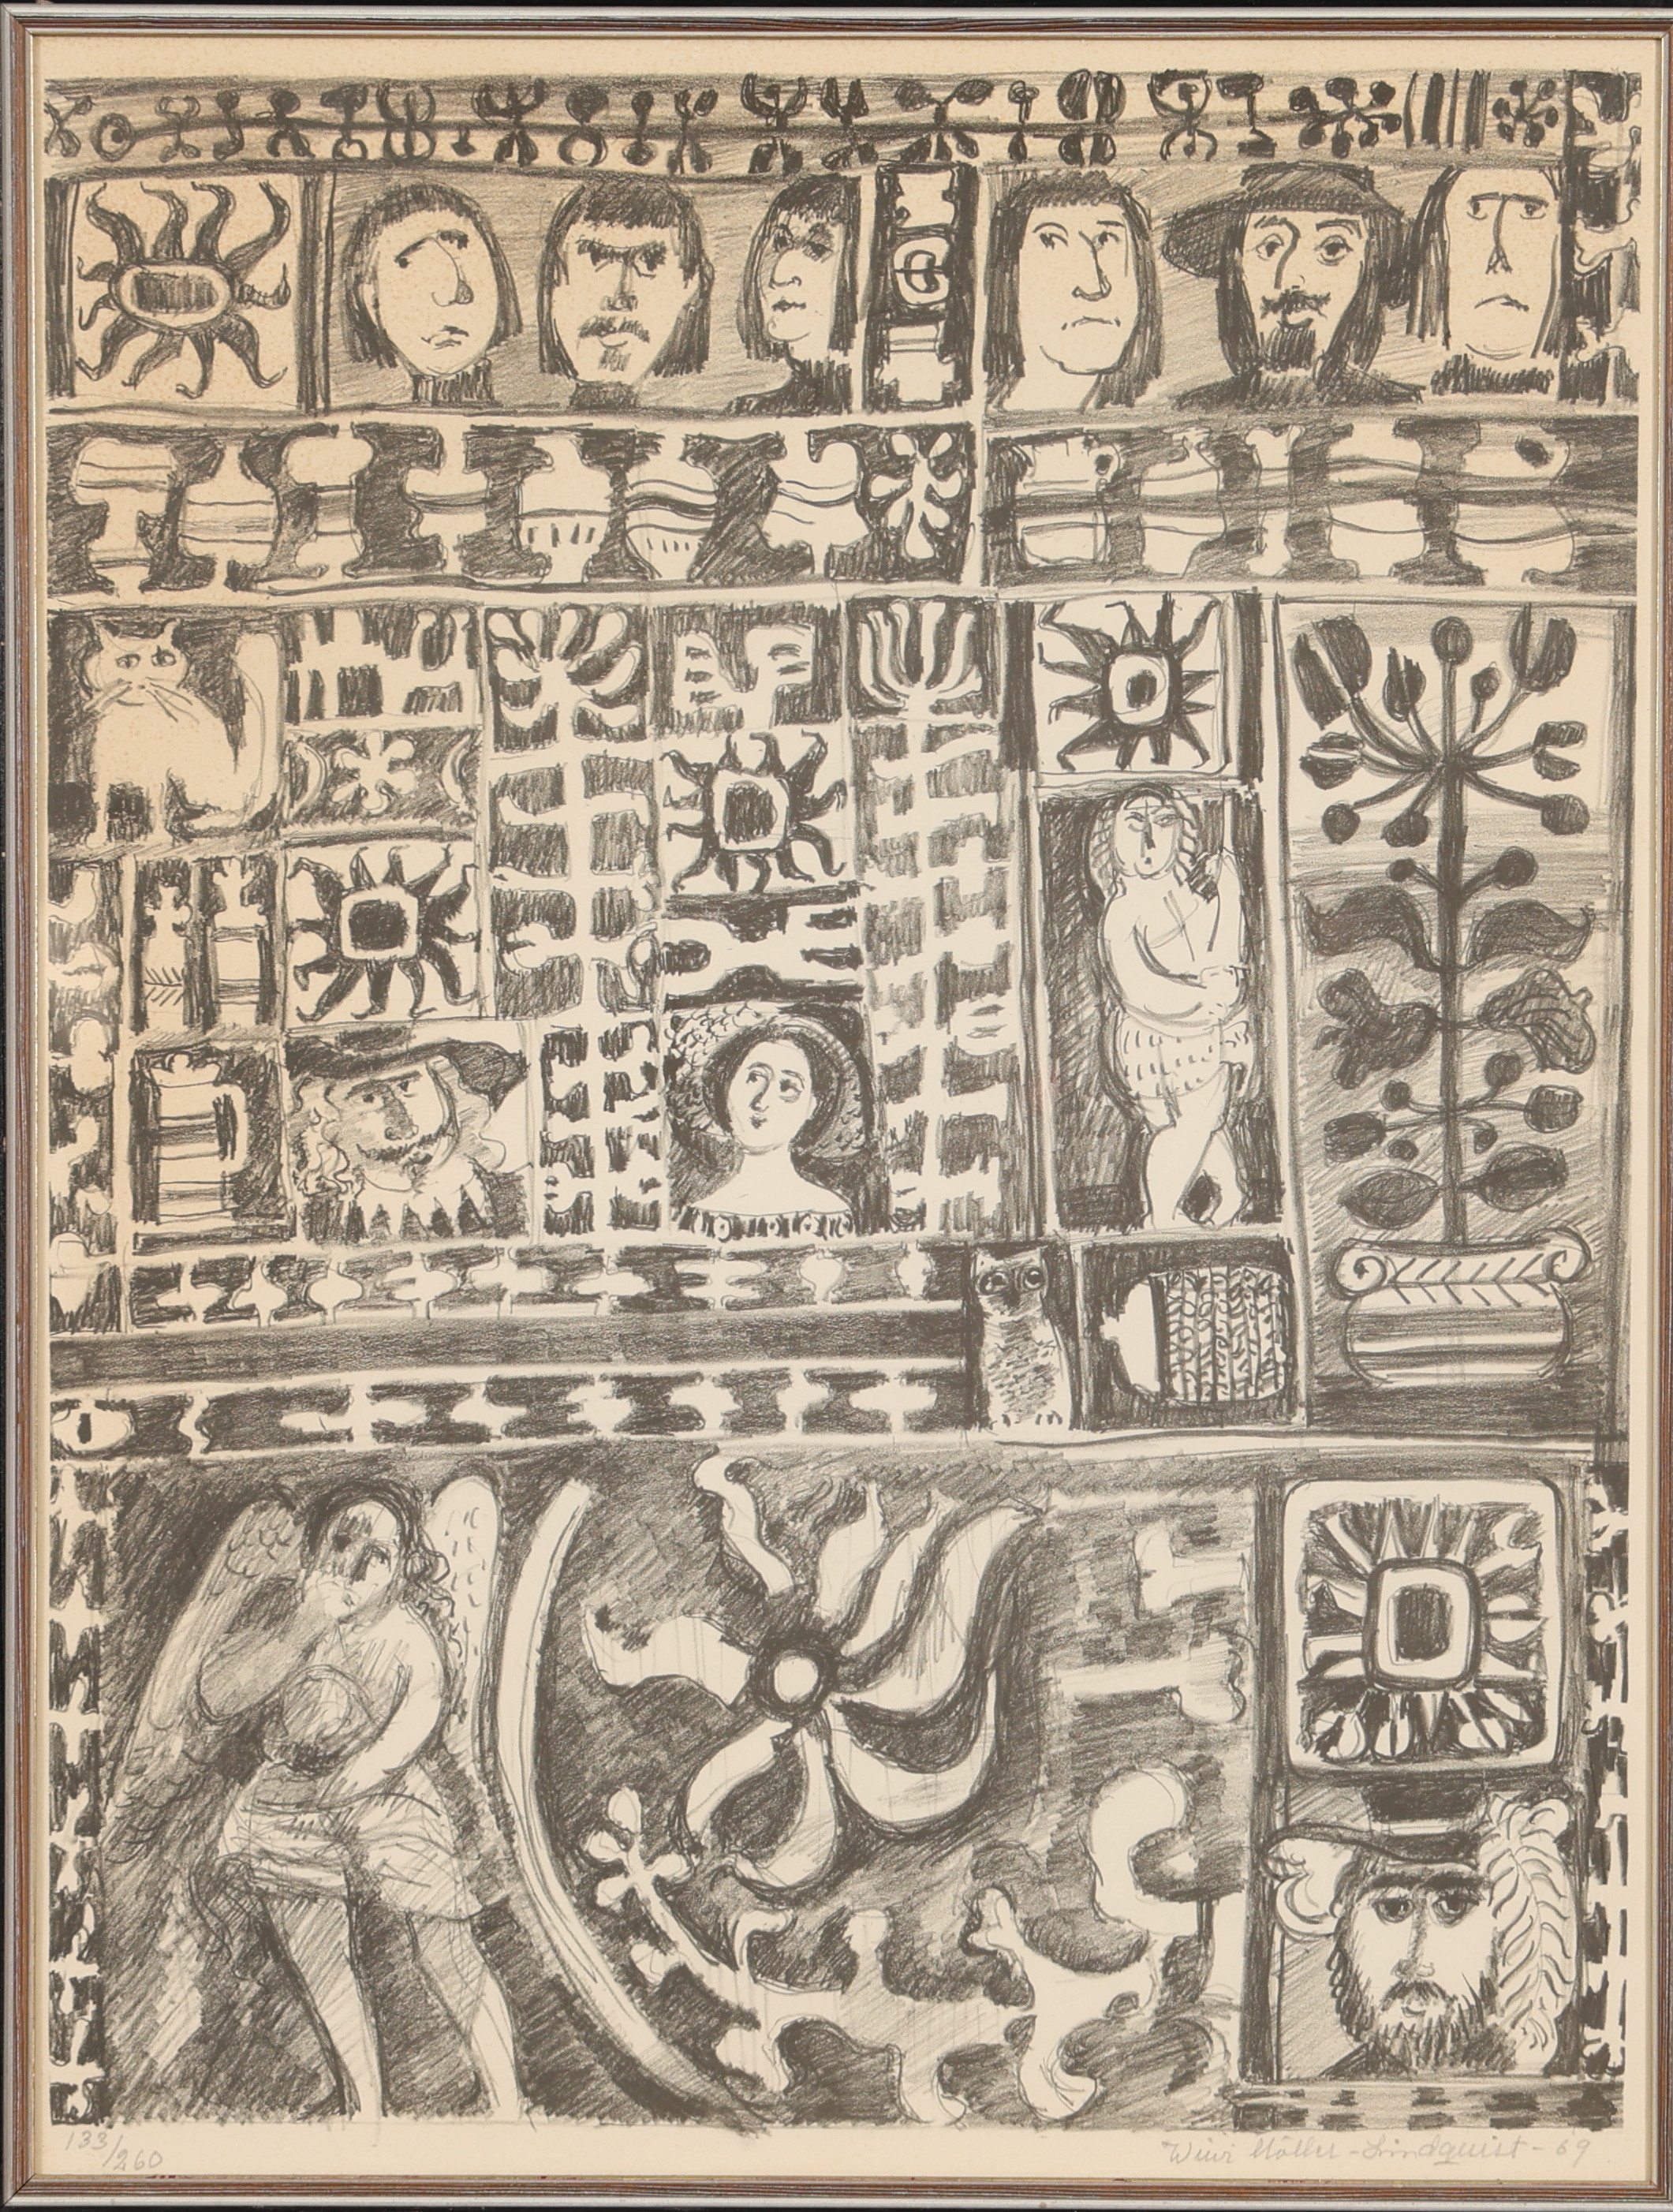 133/260
Möller-Lindquist-69